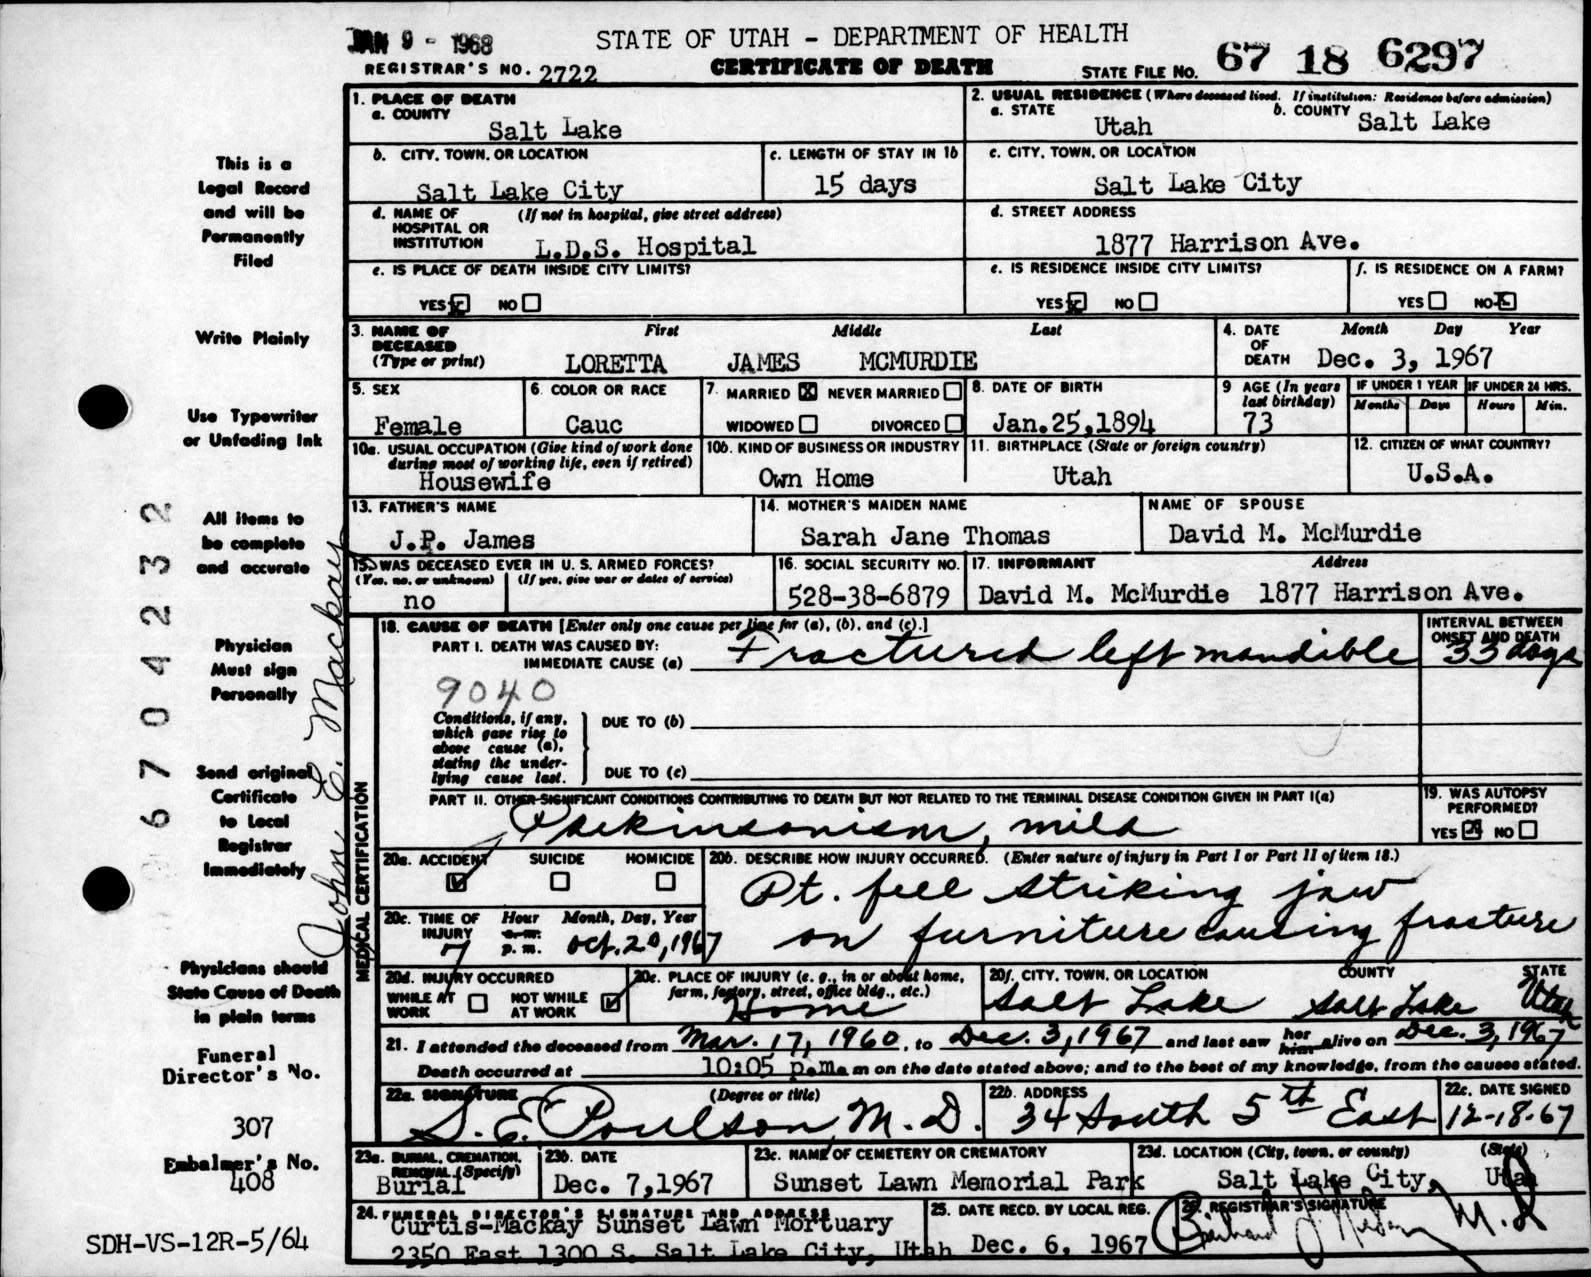 JAN 9 - 1968
STATE OF UTAH - DEPARTMENT OF HEALTH
REGISTRAR'S NO. 2722
CERTIFICATE OF DEATH
STATE FILE NO. 67 18 6297
1. PLACE OF DEATH
a. COUNTY
Salt Lake
2. USUAL RESIDENCE (Where deceased lived. If institution: Residence before admission)
a. STATE
Utah
b. COUNTY
Salt Lake
b. CITY, TOWN, OR LOCATION
Salt Lake City
c. LENGTH OF STAY IN 1b
15 days
c. CITY, TOWN, OR LOCATION
Salt Lake City
d. NAME OF HOSPITAL OR INSTITUTION
(If not in hospital, give street address)
L.D.S. Hospital
d. STREET ADDRESS
1877 Harrison Ave.
e. IS PLACE OF DEATH INSIDE CITY LIMITS?
YES x NO
e. IS RESIDENCE INSIDE CITY LIMITS?
YES x NO
f. IS RESIDENCE ON A FARM?
YES NO x
3. NAME OF DECEASED
(Type or print)
First Middle Last
LORETTA JAMES MCMURDIE
4. DATE OF DEATH
Month Day Year
Dec. 3, 1967
5. SEX
Female
6. COLOR OR RACE
Cauc
7. MARRIED X NEVER MARRIED
WIDOWED DIVORCED
8. DATE OF BIRTH
Jan.25,1894
9 AGE (In years last birthday)
73
IF UNDER 1 YEAR
Months Days
IF UNDER 24 HRS.
Hours Min.
10a. USUAL OCCUPATION (Give kind of work done during most of working life, even if retired)
Housewife
10b. KIND OF BUSINESS OR INDUSTRY
Own Home
11. BIRTHPLACE (State or foreign country)
Utah
12. CITIZEN OF WHAT COUNTRY?
U.S.A.
13. FATHER'S NAME
J.P. James
14. MOTHER'S MAIDEN NAME
Sarah Jane Thomas
NAME OF SPOUSE
David M. McMurdie
15. WAS DECEASED EVER IN U. S. ARMED FORCES?
(Yes, no, or unknown) (If yes, give war or dates of service)
no
16. SOCIAL SECURITY NO.
528-38-6879
17. INFORMANT Address
David M. McMurdie 1877 Harrison Ave.
18. CAUSE OF DEATH [Enter only one cause per line for (a), (b), and (c).]
PART I. DEATH WAS CAUSED BY:
IMMEDIATE CAUSE (a) Fractured left mandible
INTERVAL BETWEEN ONSET AND DEATH
33 days
9040
Conditions, if any, which gave rise to above cause (a), stating the underlying cause last.
DUE TO (b)
DUE TO (c)
PART II. OTHER SIGNIFICANT CONDITIONS CONTRIBUTING TO DEATH BUT NOT RELATED TO THE TERMINAL DISEASE CONDITION GIVEN IN PART I(a)
Parkinsonism, mild
19. WAS AUTOPSY PERFORMED?
YES X NO
20a. ACCIDENT SUICIDE HOMICIDE
20b. DESCRIBE HOW INJURY OCCURRED. (Enter nature of injury in Part I or Part II of item 18.)
Pt. fell striking jaw
on furniture causing fracture
20c. TIME OF INJURY
Hour Month, Day, Year
a.m.
7 p.m. Oct. 20, 1967
20d. INJURY OCCURRED
WHILE AT WORK NOT WHILE AT WORK
20e. PLACE OF INJURY (e. g., in or about home, farm, factory, street, office bldg., etc.)
Home
20f. CITY, TOWN, OR LOCATION COUNTY STATE
Salt Lake Salt Lake Utah
21. I attended the deceased from Mar. 17, 1960, to Dec. 3, 1967 and last saw her him alive on Dec. 3, 1967
Death occurred at 10:05 p.m. m on the date stated above; and to the best of my knowledge, from the causes stated.
22a. SIGNATURE (Degree or title)
S. E. Poulson, M.D.
22b. ADDRESS
34 South 5th East
22c. DATE SIGNED
12-18-67
23a. BURIAL, CREMATION, REMOVAL (Specify)
Burial
23b. DATE
Dec. 7,1967
23c. NAME OF CEMETERY OR CREMATORY
Sunset Lawn Memorial Park
23d. LOCATION (City, town, or county) (State)
Salt Lake City, Utah
24. FUNERAL DIRECTOR'S SIGNATURE AND ADDRESS
Curtis-Mackay Sunset Lawn Mortuary
2350 East 1300 S. Salt Lake City, Utah
25. DATE RECD. BY LOCAL REG.
Dec. 6, 1967
26. REGISTRAR'S SIGNATURE
M.D
MEDICAL CERTIFICATION
John E. Mackay
67 04232
This is a
Legal Record
and will be
Permanently
Filed
Write Plainly
Use Typewriter
or Unfading Ink
All items to
be complete
and accurate
Physician
Must sign
Personally
Send original
Certificate
to Local
Registrar
Immediately
Physicians should
State Cause of Death
in plain terms
Funeral
Director's No.
307
Embalmer's No.
408
SDH-VS-12R-5/64